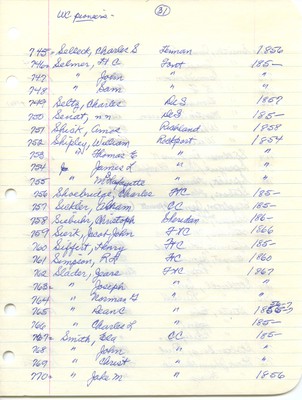 WC pioneers - 31
745 - Selleck, Charles S Lennan 1856
746 - Selmer, H C Font 185-
747 " John " "
748 " Sam " "
749 Seltz, Charles DeS 1857
750 Senat, nn DeS 185-
751 Shisk, Amos Richland 1858
752 Shipley, William Rockport 1854
753 " Thomas E " "
754 Jo James L " "
755 " M Lafayette " "
756 Shoebridge, Charles FC 185-
757 Sickler, Adham CC 185-
758 Siebuhr, Christoph Sheridan 186-
759 Sierk, Jacob John FTC 1866
760 Siffert, Henry FC 185-
761 Simpson, R L FC 1860
762 Slader, Jesse FTC 1867
763 - " Joseph " "
764 " Norman G " "
765 " Dean C "
766 " Charles L " 185-
767 - Smith, Ela CC 185-
768 " John " "
769 " Christ " "
770 - " Jake M " 1856